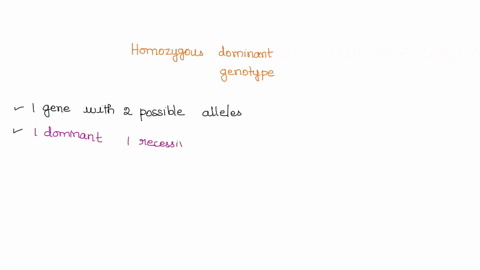 Homozygous dominant
genotype
✓ 1 gene with 2 possible alleles
✓ 1 domnant 1 recessi